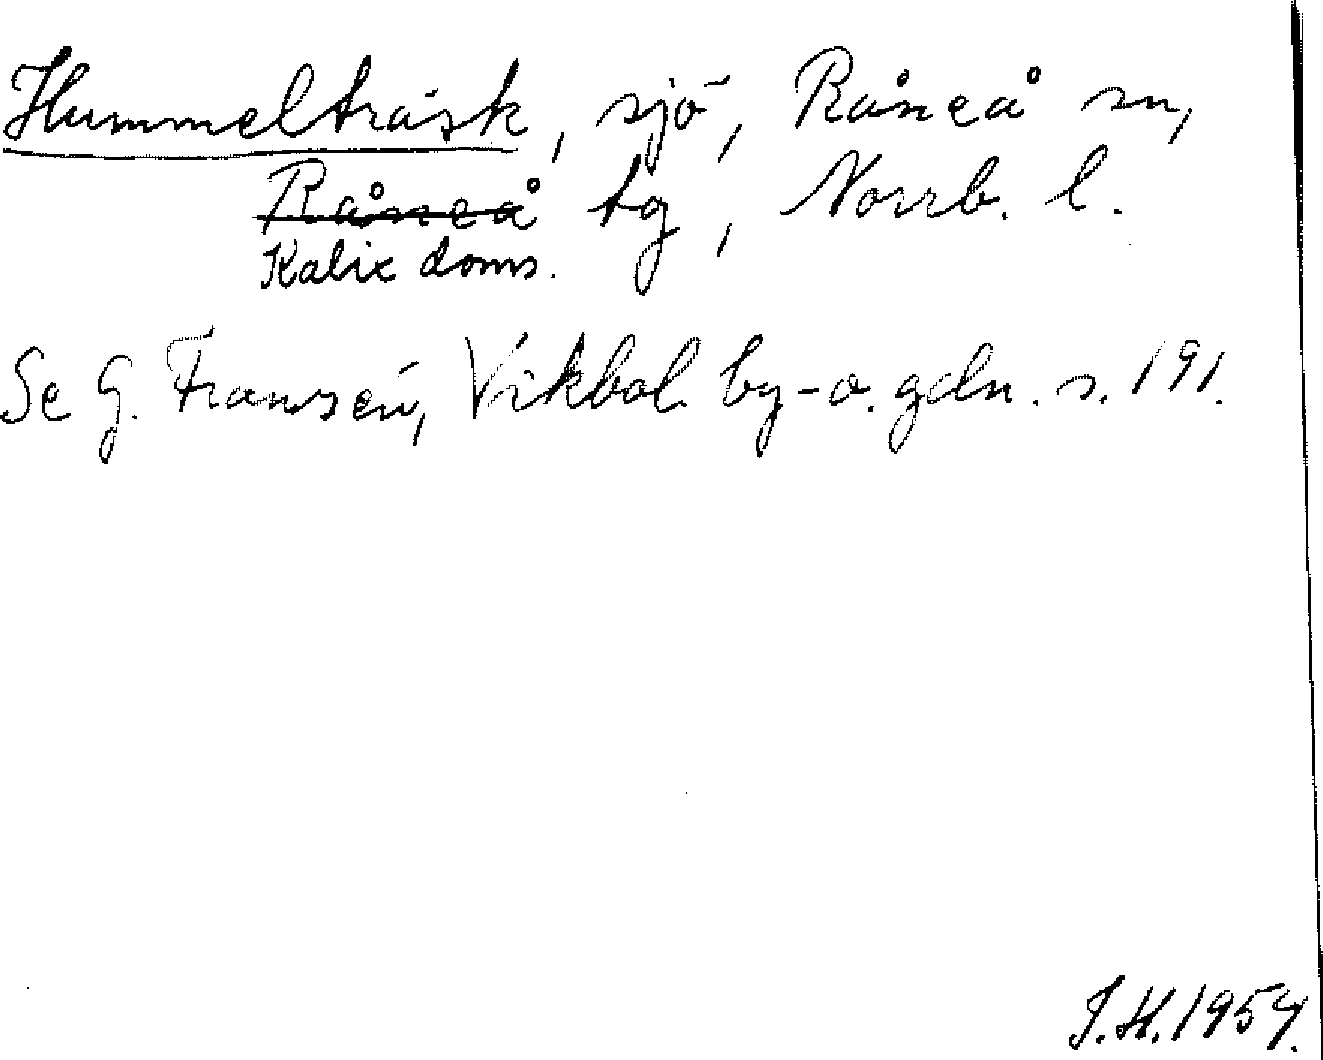 Hummelträsk, sjö, Råneå sn,
Råneå tg, Norrb. l.
Kalix doms.
Se G. Franzén, Vikbol. by- o. gdn. s. 191.
J.H. 1954.